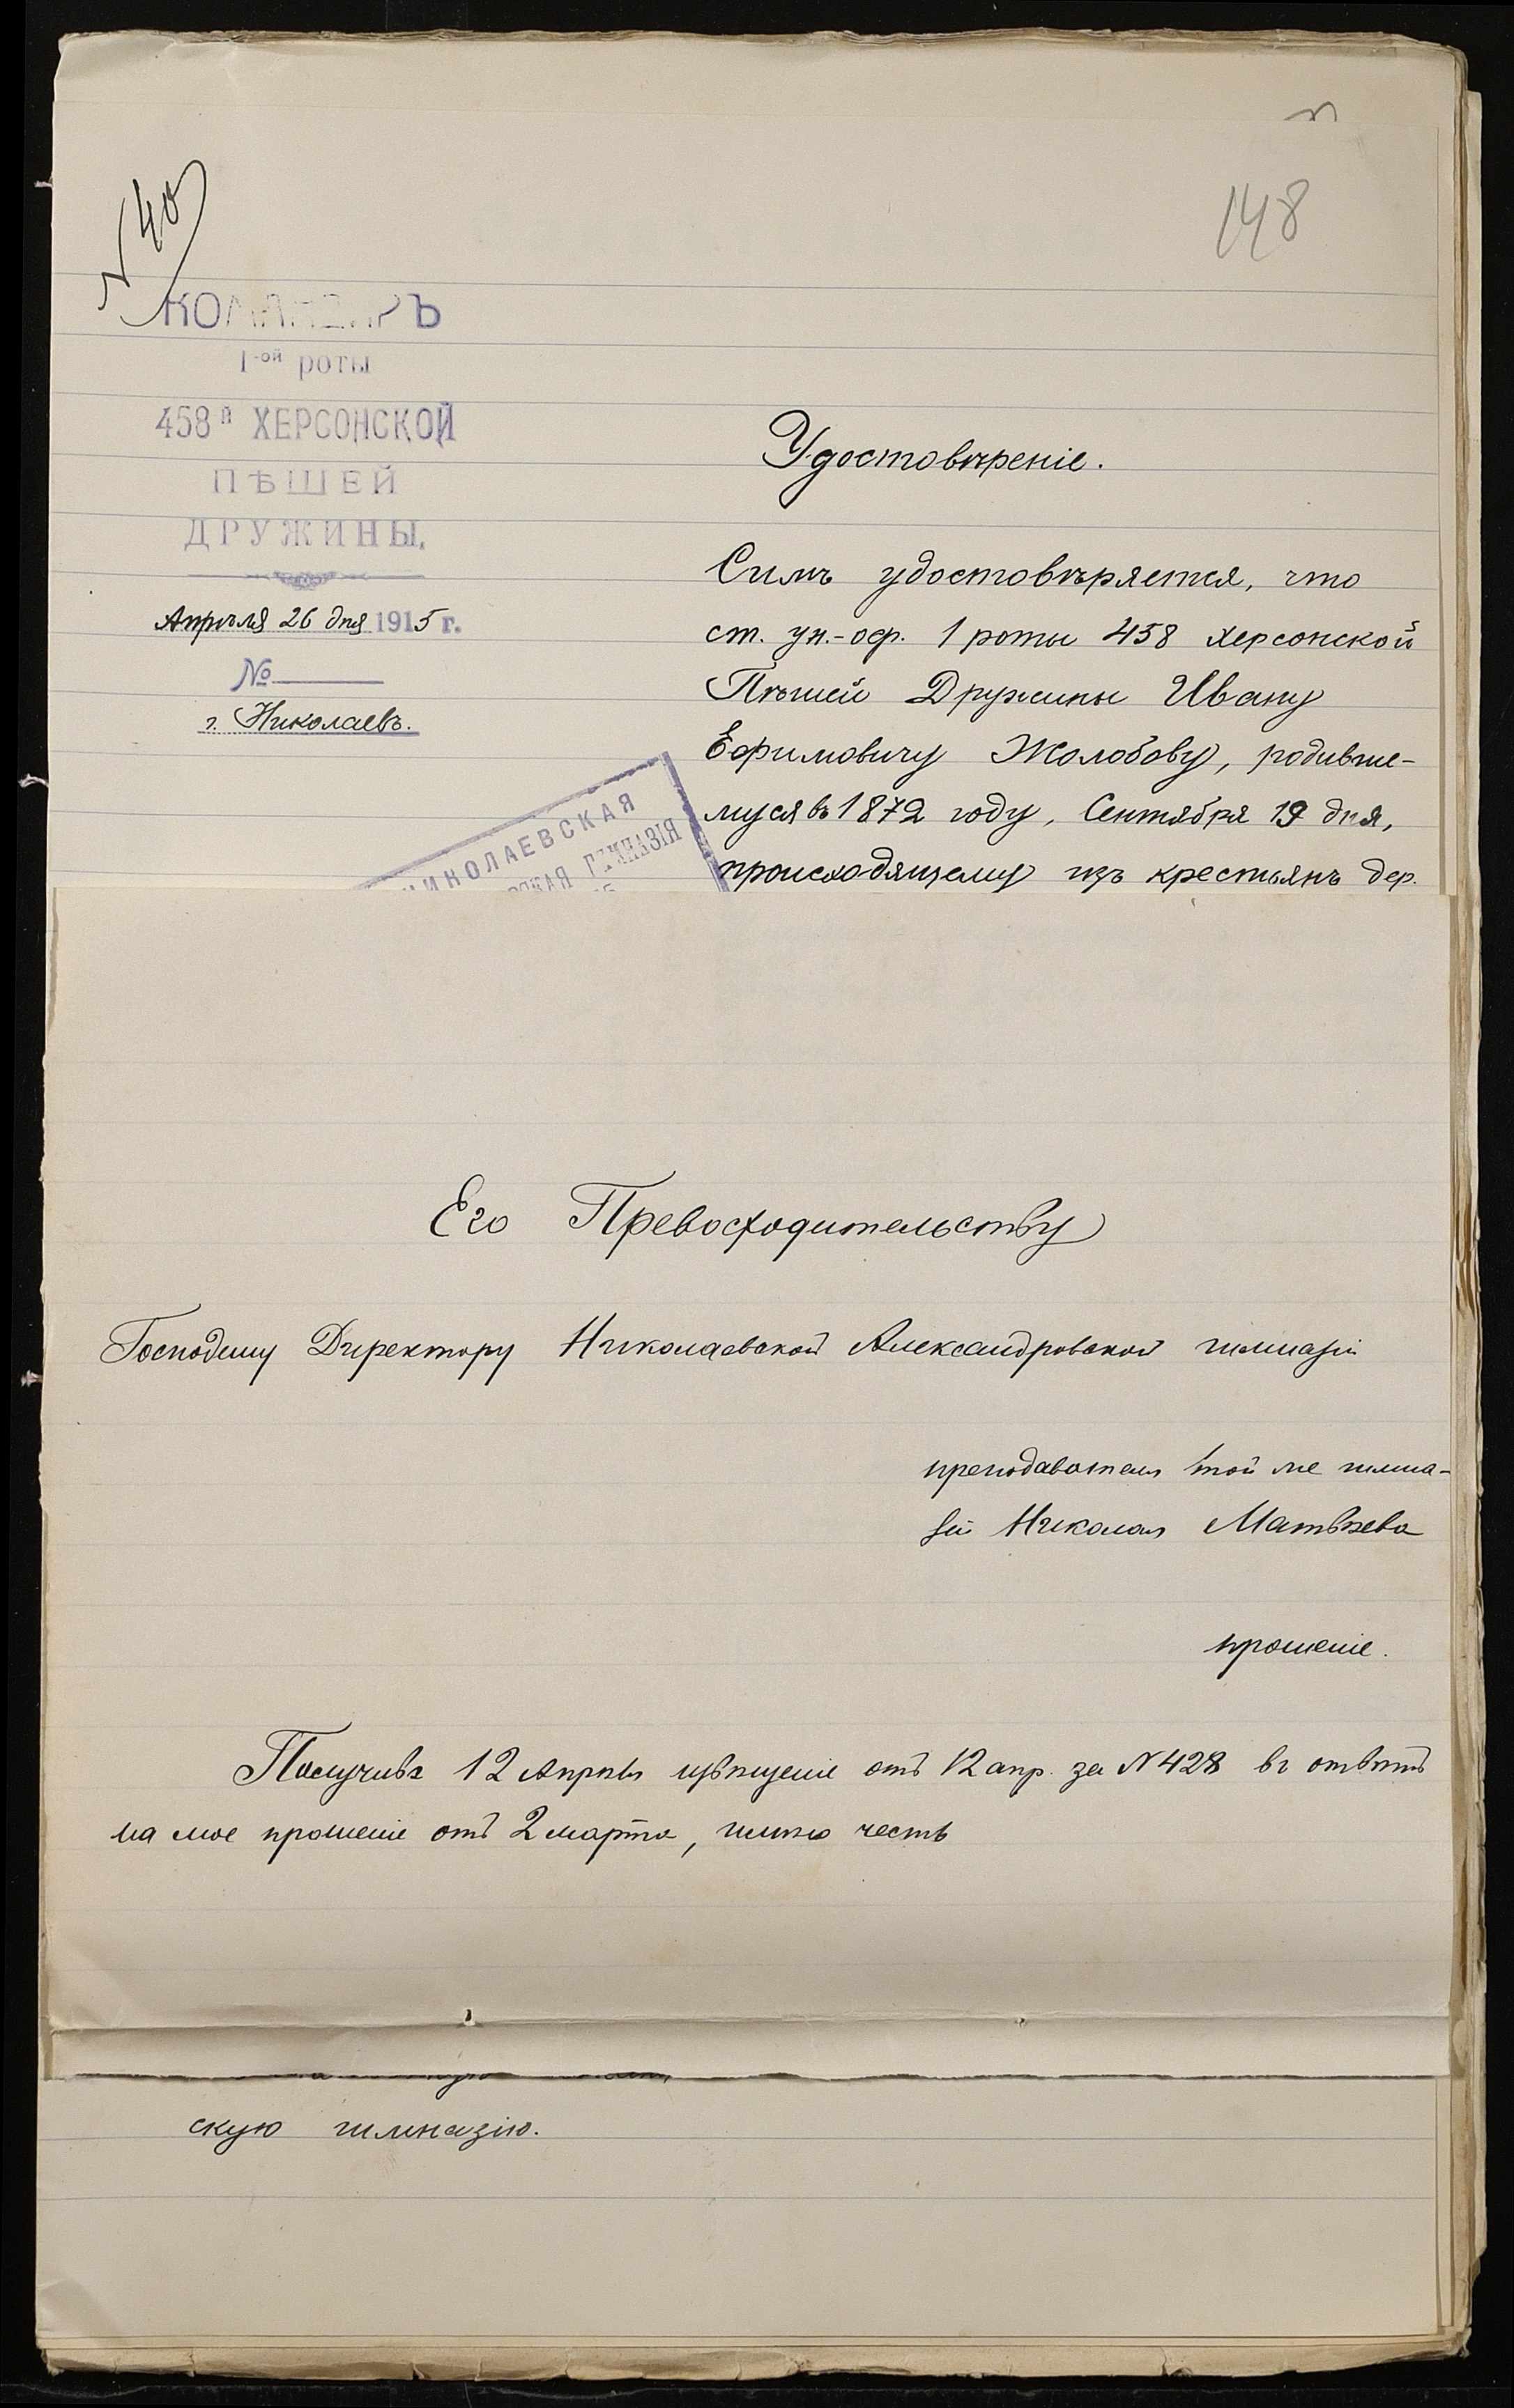 148
№ 40
КОМАНДИРЪ
1-ой роты
458й ХЕРСОНСКОЙ
ПѢШЕЙ
ДРУЖИНЫ.
Апрѣля 26 дня 1915 г.
№
г. Николаевъ.
Удостовѣреніе.
Симъ удостовѣряется, что
ст. ун.-оф. 1 роты 458 Херсонской
Пѣшей Дружины Ивану
Ефимовичу Жолобову, родивше-
муся въ 1872 году, Сентября 19 дня,
происходящему изъ крестьянъ дер.
НИКОЛАЕВСКАЯ
ГИМНАЗІЯ
Его Превосходительству
Господину Директору Николаевской Александровской гимназіи
преподавателя той же гимна-
зіи Николая Матвѣева
прошеніе.
Получивъ 12 Апрѣля извѣщеніе отъ 12 апр. за № 428 въ отвѣтъ
на мое прошеніе отъ 2 марта, имѣю честь
скую гимназію.